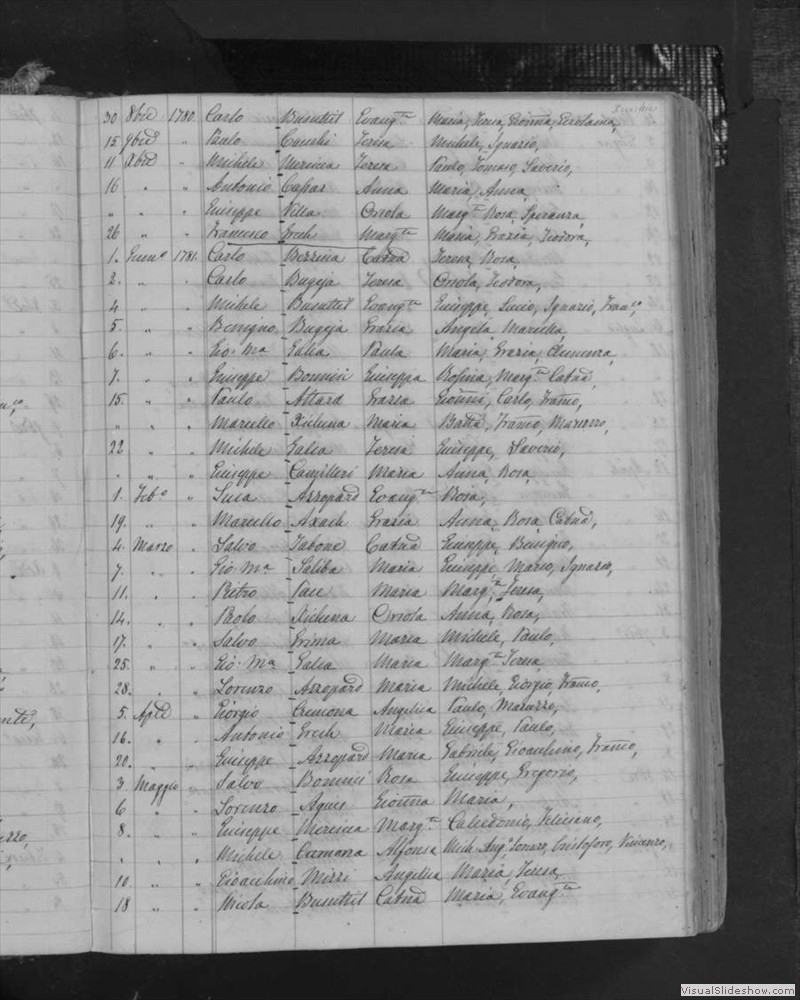 30 8bre 1780. Carlo Busuttil Evang.ta Maria, Teresa, Gioanna,
15 9bre " Paulo Teresa Michele, Ignazio,
11 Xbre " Michele Mercieca Teresa Paulo, Tomaso, Saverio,
16 " " Antonio Caspar Anna Maria, Anna,
" " " Giuseppe Villa Orsola Marg.ta Rosa, Speranza,
26 " " Francesco Grech Marg.ta Maria, Grazia, Teodora,
1. Genn.o 1781. Carlo Mercieca Catna Teresa, Rosa,
2. " " Carlo Bugeja Teresa Orsola, Teodora,
4 " " Michele Busuttil Evang.ta Giuseppe, Lucio, Ignazio, Fran.co,
5. " " Benigno Bugeja Grazia Angela, Maruzza,
6. " " Gio: Ma Galea Paula Maria, Grazia, Clemenza,
7. " " Giuseppe Bonnici Giuseppa Rosina, Marg.ta Catna,
15. " " Paulo Attard Grazia Gioanni, Carlo, Franco,
" " " Marcello Xicluna Maria Batta, Franco,
22 " " Michele Galea Teresa Giuseppe, Saverio,
" " " Giuseppe Camilleri Maria Anna, Rosa,
1. Febo " Luca Azzopard Evang.ta Rosa,
19. " " Marcello Axiach Grazia Anna, Rosa, Catna,
4. Marzo " Salvo Tabone Catna Giuseppe, Benigno,
7. " " Gio: Ma Saliba Maria Giuseppe Mario, Ignazio,
11. " " Pietro Pace Maria Marg.ta Teresa,
14. " " Paolo Xicluna Orsola Anna, Rosa,
17. " " Salvo Grima Maria Michele, Paulo,
25. " " Gio: Ma Galea Maria Marg.ta Teresa
28. " " Lorenzo Azzopard Maria Michele, Giorgio, Franco,
5. Aple " Giorgio Cremona Angelica Paulo, Maruzzo,
16. " " Antonio Grech Maria Giuseppe, Paulo,
20. " " Giuseppe Azzopard Maria Gabriele, Gioachino, Franco,
3. Maggio " Salvo Bonnici Rosa Giuseppe, Gregorio,
6 " " Lorenzo Agius Gioanna Maria,
8. " " Giuseppe Mercieca Marg.ta Calcedonio, Feliciano,
" " " Michele Cremona Alfonsa Mich: Ang.o Cristoforo, Vincenzo,
10. " " Gioachino Mizzi Angelica Maria, Teresa,
18 " " Nicola Busuttil Catna Maria, Evang.ta
VisualSlideshow.com